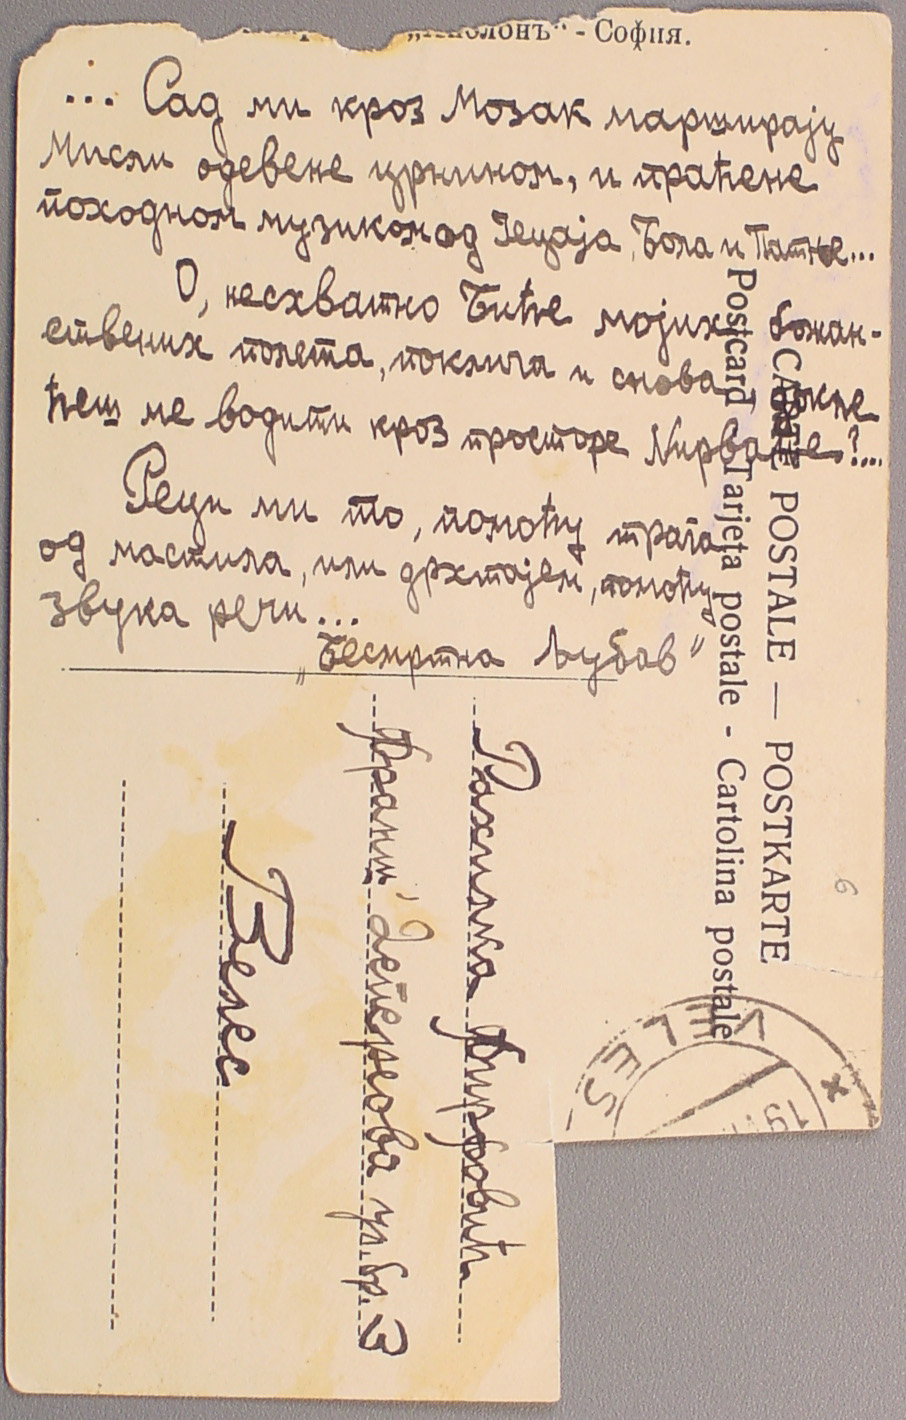 „Аполонъ“ - София.
... Сад ми кроз Мозак марширају
Мисли одевене црнином, и праћене
походном музиком од Јецаја, Бола и Патње...
О, несхватно Биће мојих божан-
ствених полета, поклича и снова
ћеш ме водити кроз просторе Нирване?...
Реци ми то, помоћу трага
од мастила, или дрхтајем, помоћу
звука речи...
„Бесмртна Љубав“
CARTE POSTALE — POSTKARTE
Postcard - Tarjeta postale - Cartolina postale
Рахилка
ул. бр. 3
Велес
VELES
19
6